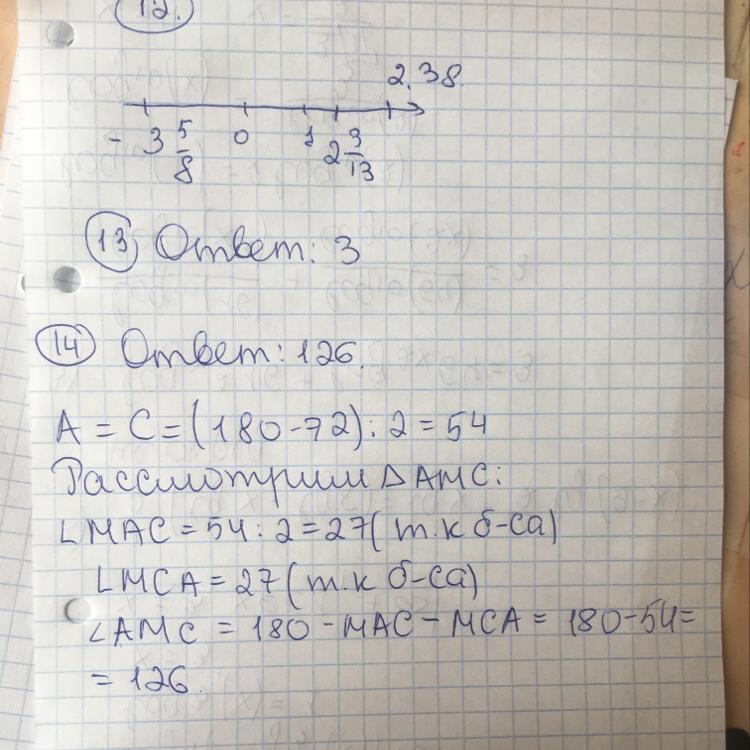 12.
2,38
- 3 5/8 0 1 2 3/13
13 Ответ: 3
14 Ответ: 126.
A = C = (180-72):2 = 54
Рассмотрим △AMC:
∠MAC = 54:2 = 27 (т.к б-са)
∠MCA = 27 (т.к б-са)
∠AMC = 180 - MAC - MCA = 180-54=
= 126.